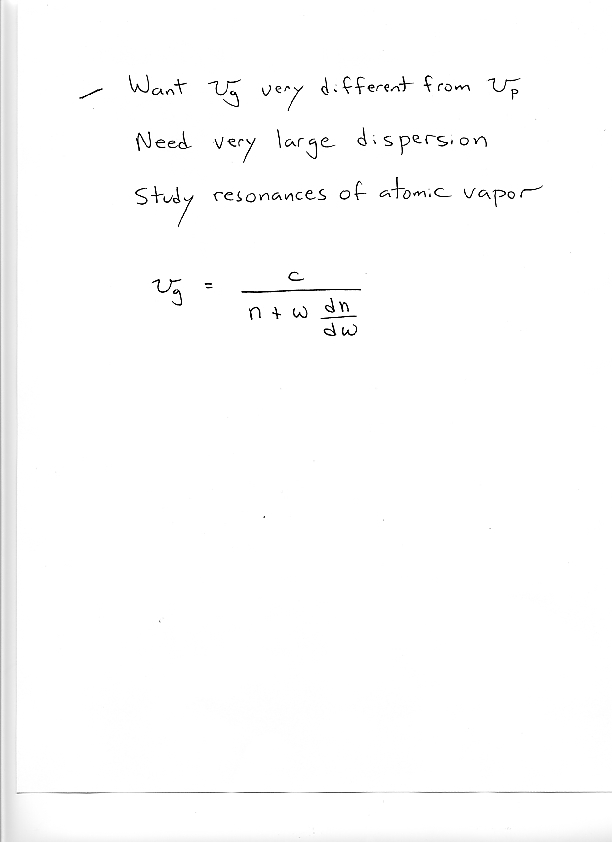 – Want v_g very different from v_p
Need very large dispersion
Study resonances of atomic vapor
v_g = c / (n + ω dn/dω)